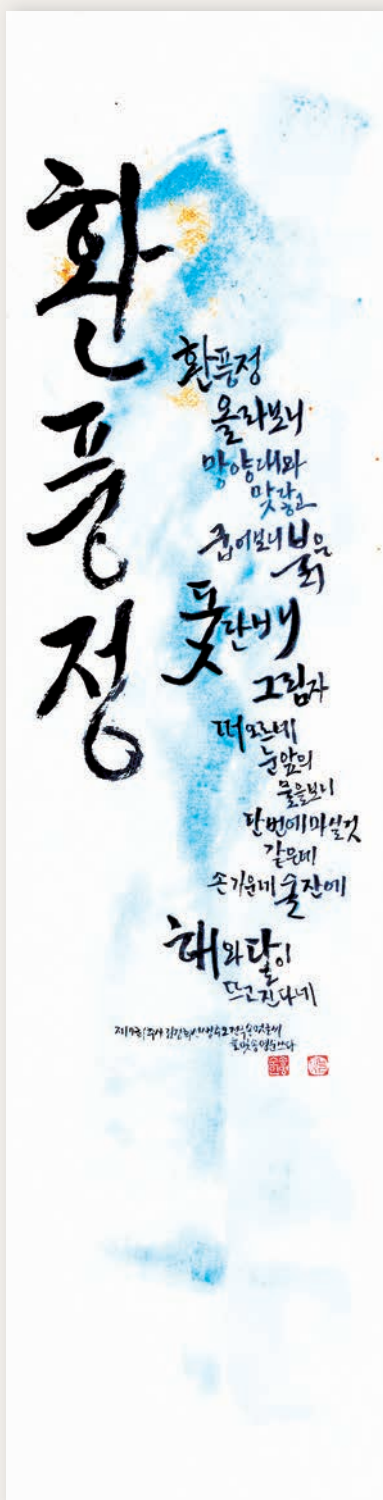 환풍정
환풍정
올라보니
망양대와
맞닿고
굽어보니 붉은
돛단배
그림자
떠오르네
눈앞의
물을보니
단번에마실것
같은데
손기운데 술잔에
해와달이
뜨고진다네